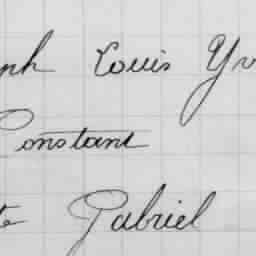 nh Louis Yv
Constant
te Gabriel